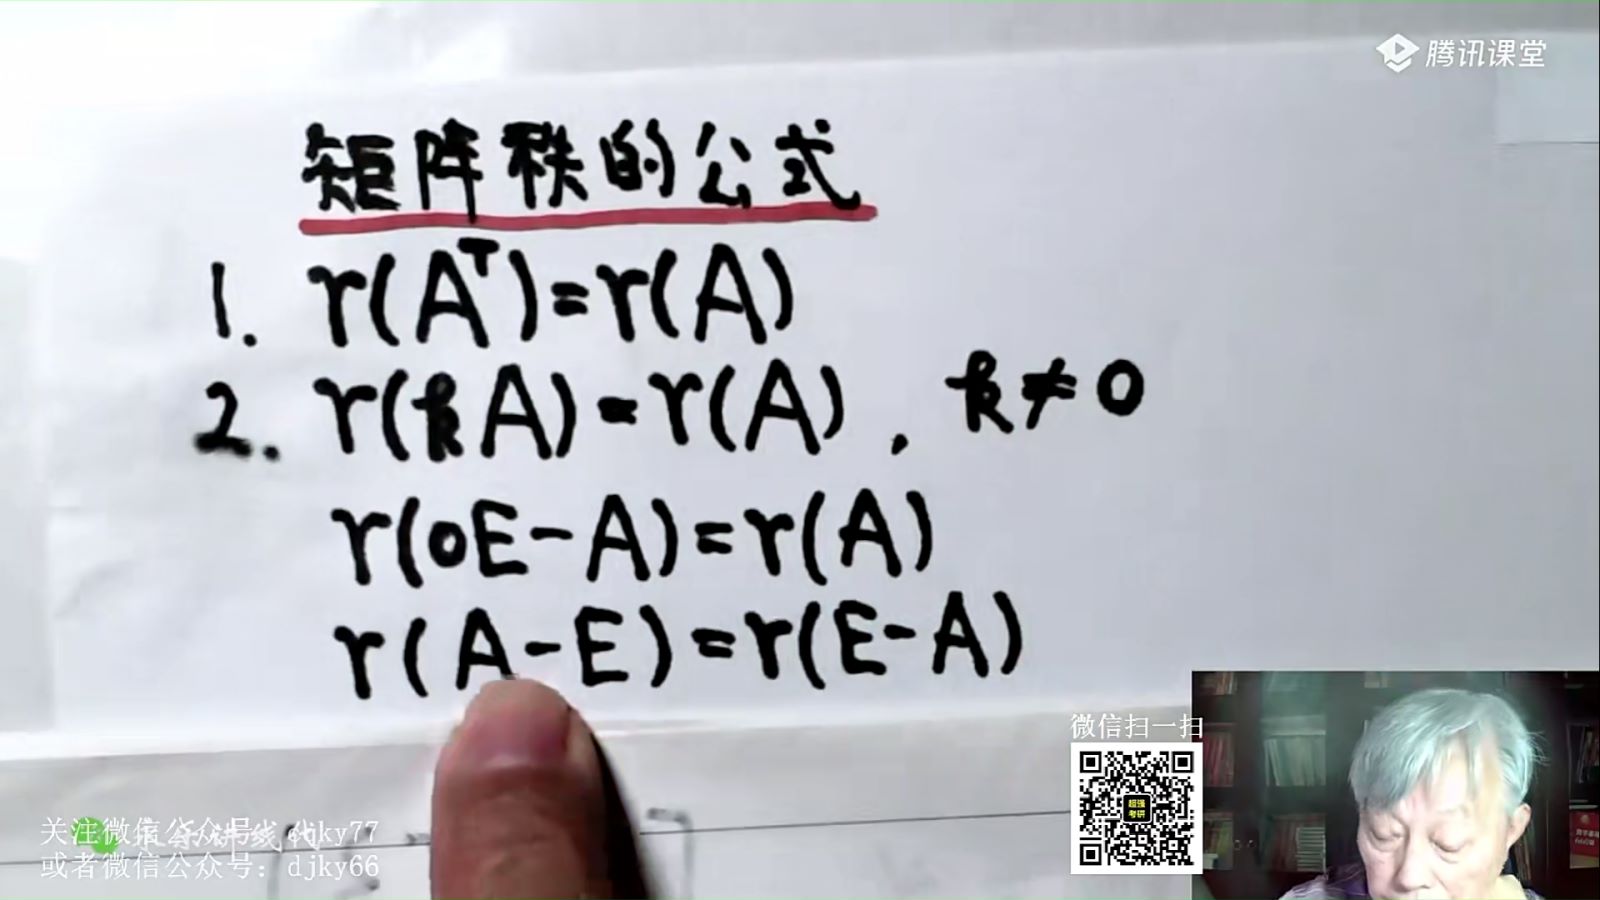 腾讯课堂
矩阵秩的公式
1. r(Aᵀ)=r(A)
2. r(kA)=r(A), k≠0
r(0E-A)=r(A)
r(A-E)=r(E-A)
微信扫一扫
超强
考研
关注微信公众号: djky77
或者微信公众号: djky66